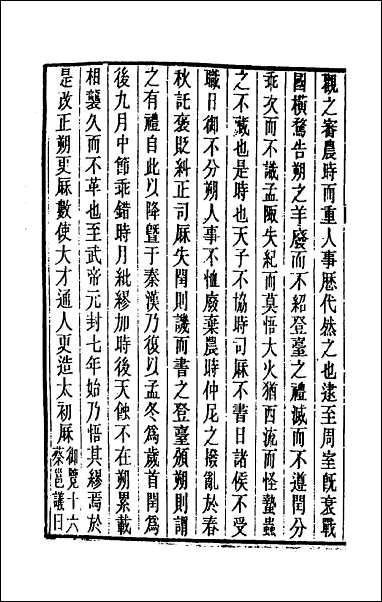 觀之審農時而重人事歷代然之也逮至周室旣衰戰
國橫騖告朔之羊廢而不紹登臺之禮滅而不遵閏分
乖次而不識孟陬失紀而莫悟大火猶西流而怪蟄蟲
之不藏也是時也天子不協時司厤不書日諸侯不受
職日御不分朔人事不恤廢棄農時仲尼之撥亂於春
秋託褒貶糾正司厤失閏則譏而書之登臺頒朔則謂
之有禮自此以降曁于秦漢乃復以孟冬爲歲首閏爲
後九月中節乖錯時月紕繆加時後天蝕不在朔累載
相襲久而不革也至武帝元封七年始乃悟其繆焉於
是改正朔更厤數使大才通人更造太初厤御覽十六
蔡邕議曰